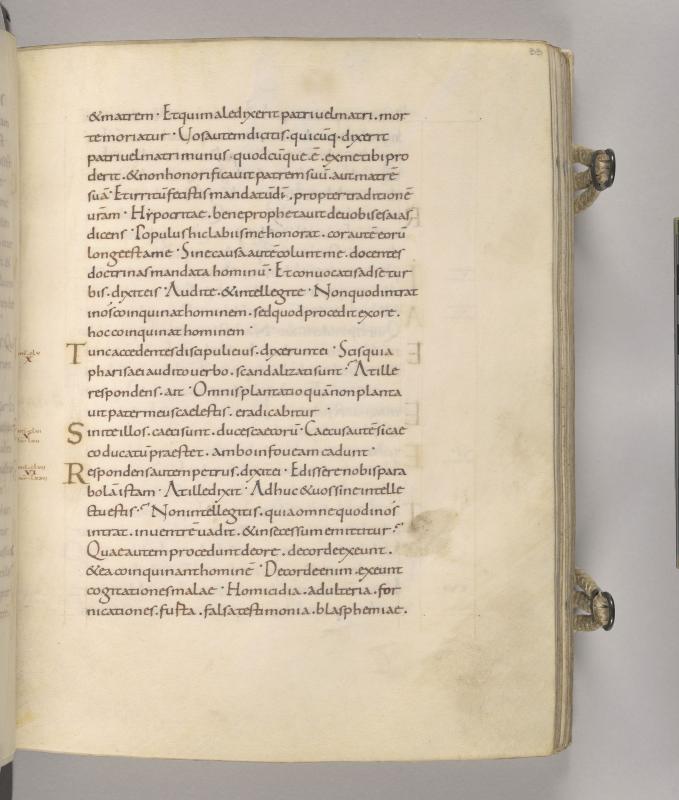 33
& matrem · Et qui maledixerit patri vel matri · mor
te moriatur · Vos autem dicitis · quicūq· dixerit
patri vel matri munus quodcūque · ē · ex me tibi pro
derit · & non honorificavit patrem suū · aut matrē
suā · Et irritū fecistis mandatū dī · propter traditionē
vr̄am · Hypocritae · bene prophetavit de vobis esaias
dicens · Populus hic labiis me honorat · cor autē eorū
longe est a me · Sine causa autē colunt me · docentes
doctrinas mandata hominū · Et convocatis ad se tur
bis · dixit eis · Audite · & intellegite · Non quod intrat
in os coinquinat hominem · sed quod procedit ex ore ·
hoc coinquinat hominem ·
Tunc accedentes discipuli eius · dixerunt ei · Scis quia
pharisaei audito verbo · scandalizati sunt · At ille
respondens · ait · Omnis plantatio quā non planta
vit pater meus caelestis · eradicabitur ·
Sinite illos · caeci sunt · duces caecorū · Caecus autē si cae
co ducatū praestet · ambo in foveam cadunt ·
Respondens autem petrus · dixit ei · Edissere nobis para
bolā istam · At ille dixit · Adhuc & vos sine intelle
ctu estis · Non intellegitis · quia omne quod in os
intrat · in ventrē vadit · & in secessum emittitur ·
Quae autem procedunt de ore · de corde exeunt ·
& ea coinquinant hominē · De corde enim · exeunt
cogitationes malae · Homicidia · adulteria · for
nicationes · furta · falsa testimonia · blasphemiae ·